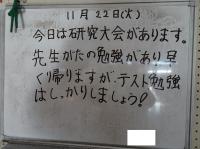 11月22日(火)
今日は研究大会があります。
先生がたの勉強があり早
くり帰りますが、テスト勉強
はしっかりしましょう!